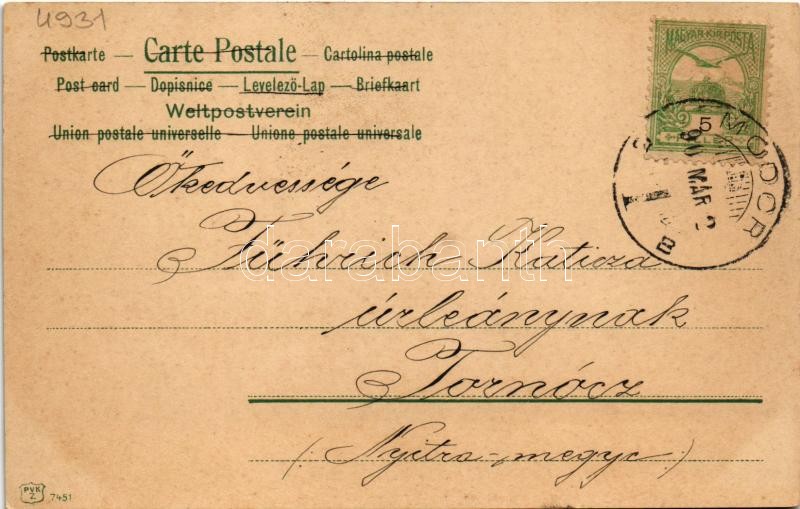 4931
Postkarte — Carte Postale — Cartolina postale
Post card — Dopisnice — Levelező-Lap — Briefkaart
Weltpostverein
Union postale universelle — Unione postale universale
MAGYAR KIR. POSTA
5
MODOR
MÁR
B
Őkedvessége
Führich Katicza
úrleánynak
Tornócz
(Nyitra-megye)
darabanth
PVK
Z.
7451